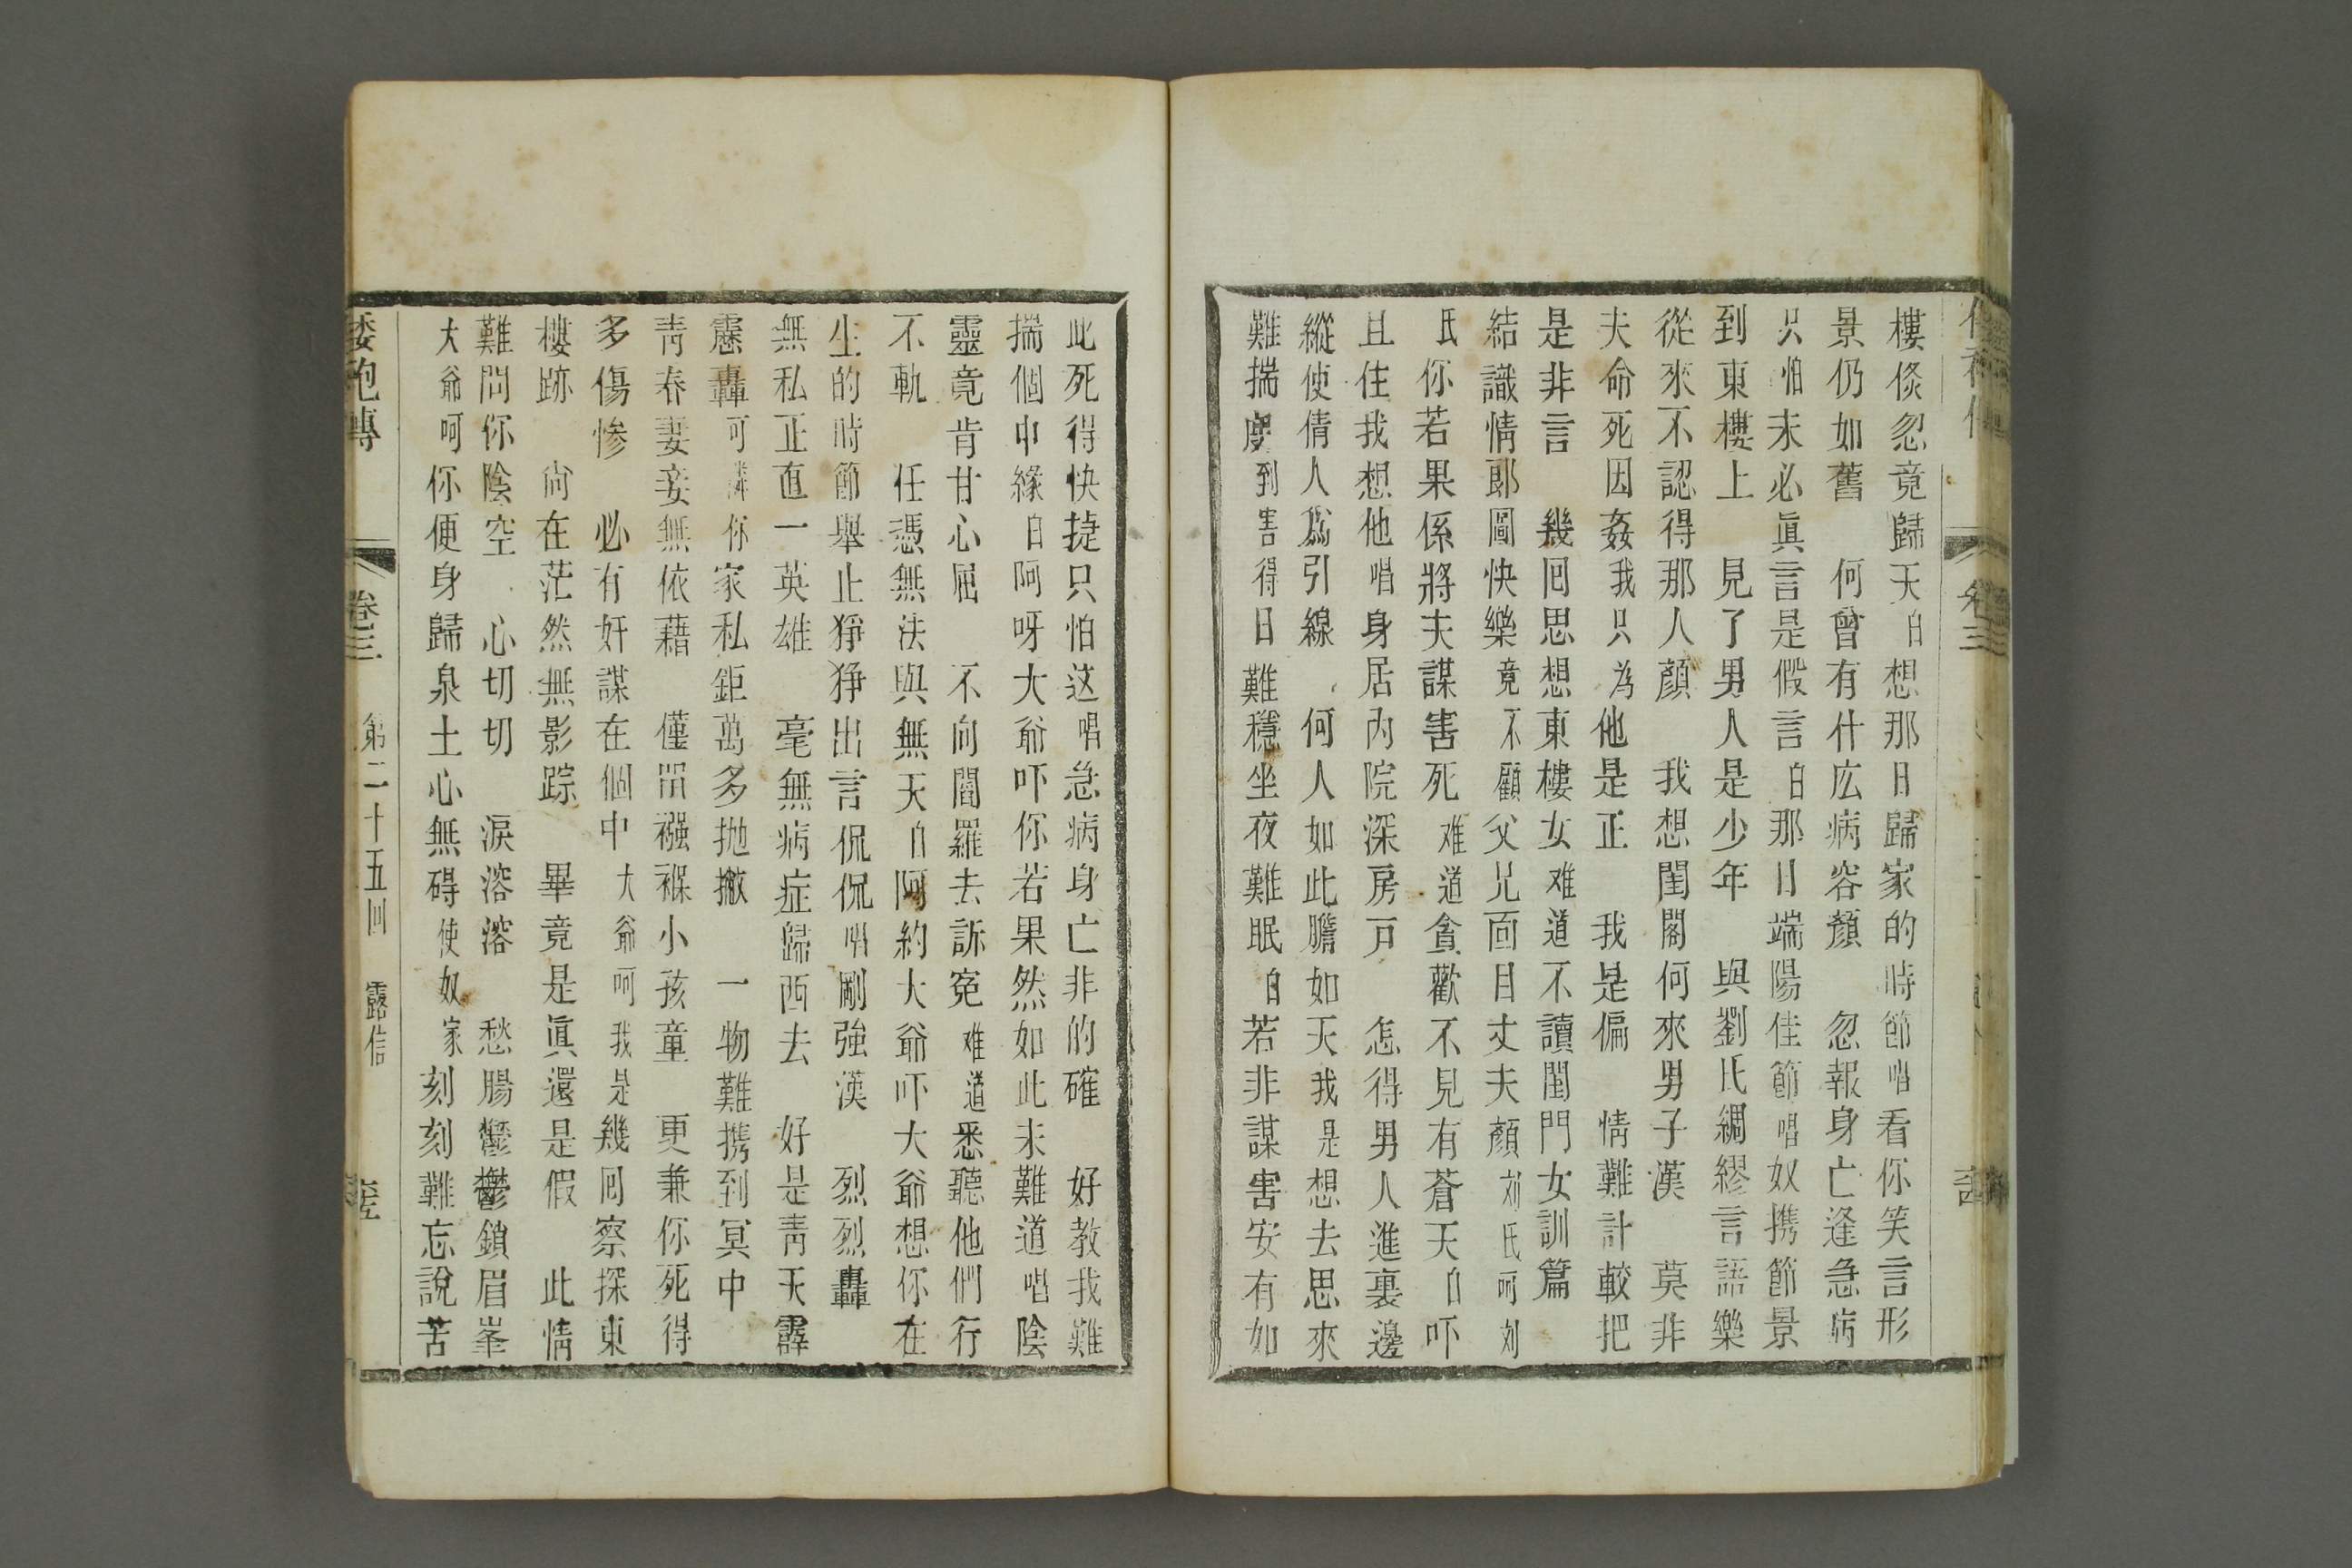 樓倐忽竟歸天白想那日歸家的時節唱看你笑言形
景仍如舊　何曾有什広病容顏　忽報身亡逢急病
只怕未必眞言是假言白那日端陽佳節唱奴携節景
到東樓上　見了男人是少年　與劉氏綢繆言語樂
從來不認得那人顏　我想閨閣何來男子漢　莫非
夫命死因姦我只為他是正　我是偏　情難計較把
是非言　幾囘思想東樓女难道不讀閨門女訓篇
結識情郎圖快樂竟不顧父兄面目丈夫顏刘氏呵刘
氏你若果係將夫謀害死难道貪歡不見有蒼天白吓
且住我想他唱身居內院深房戸　怎得男人進裏邊
縱使倩人爲引線　何人如此膽如天我是想去思來
難揣度到害得日難穩坐夜難眠白若非謀害安有如
此死得快捷只怕这唱急病身亡非的確　好教我難
揣個中緣白阿呀大爺吓你若果然如此未難道唱陰
靈竟肯甘心屈　不向閻羅去訴冤难道悉聽他們行
不軌　任憑無法與無天白阿約大爺吓大爺想你在
生的時節舉止猙猙出言侃侃唱剛強漢　烈烈轟
無私正直一英雄　毫無病症歸西去　好是青天霹
靂轟可憐你家私鉅萬多抛撇　一物難携到冥中
青春妻妾無依藉　僅留襁褓小孩童　更兼你死得
多傷慘　必有奸謀在個中大爺呵我是幾囘察探東
樓跡　尙在茫然無影踪　畢竟是眞還是假　此情
難問你陰空　心切切　淚溶溶　愁腸鬱鬱鎖眉峯
大爺呵你便身歸泉土心無碍使奴家刻刻難忘說苦
倭袍傳　卷三　第二十五回　露信